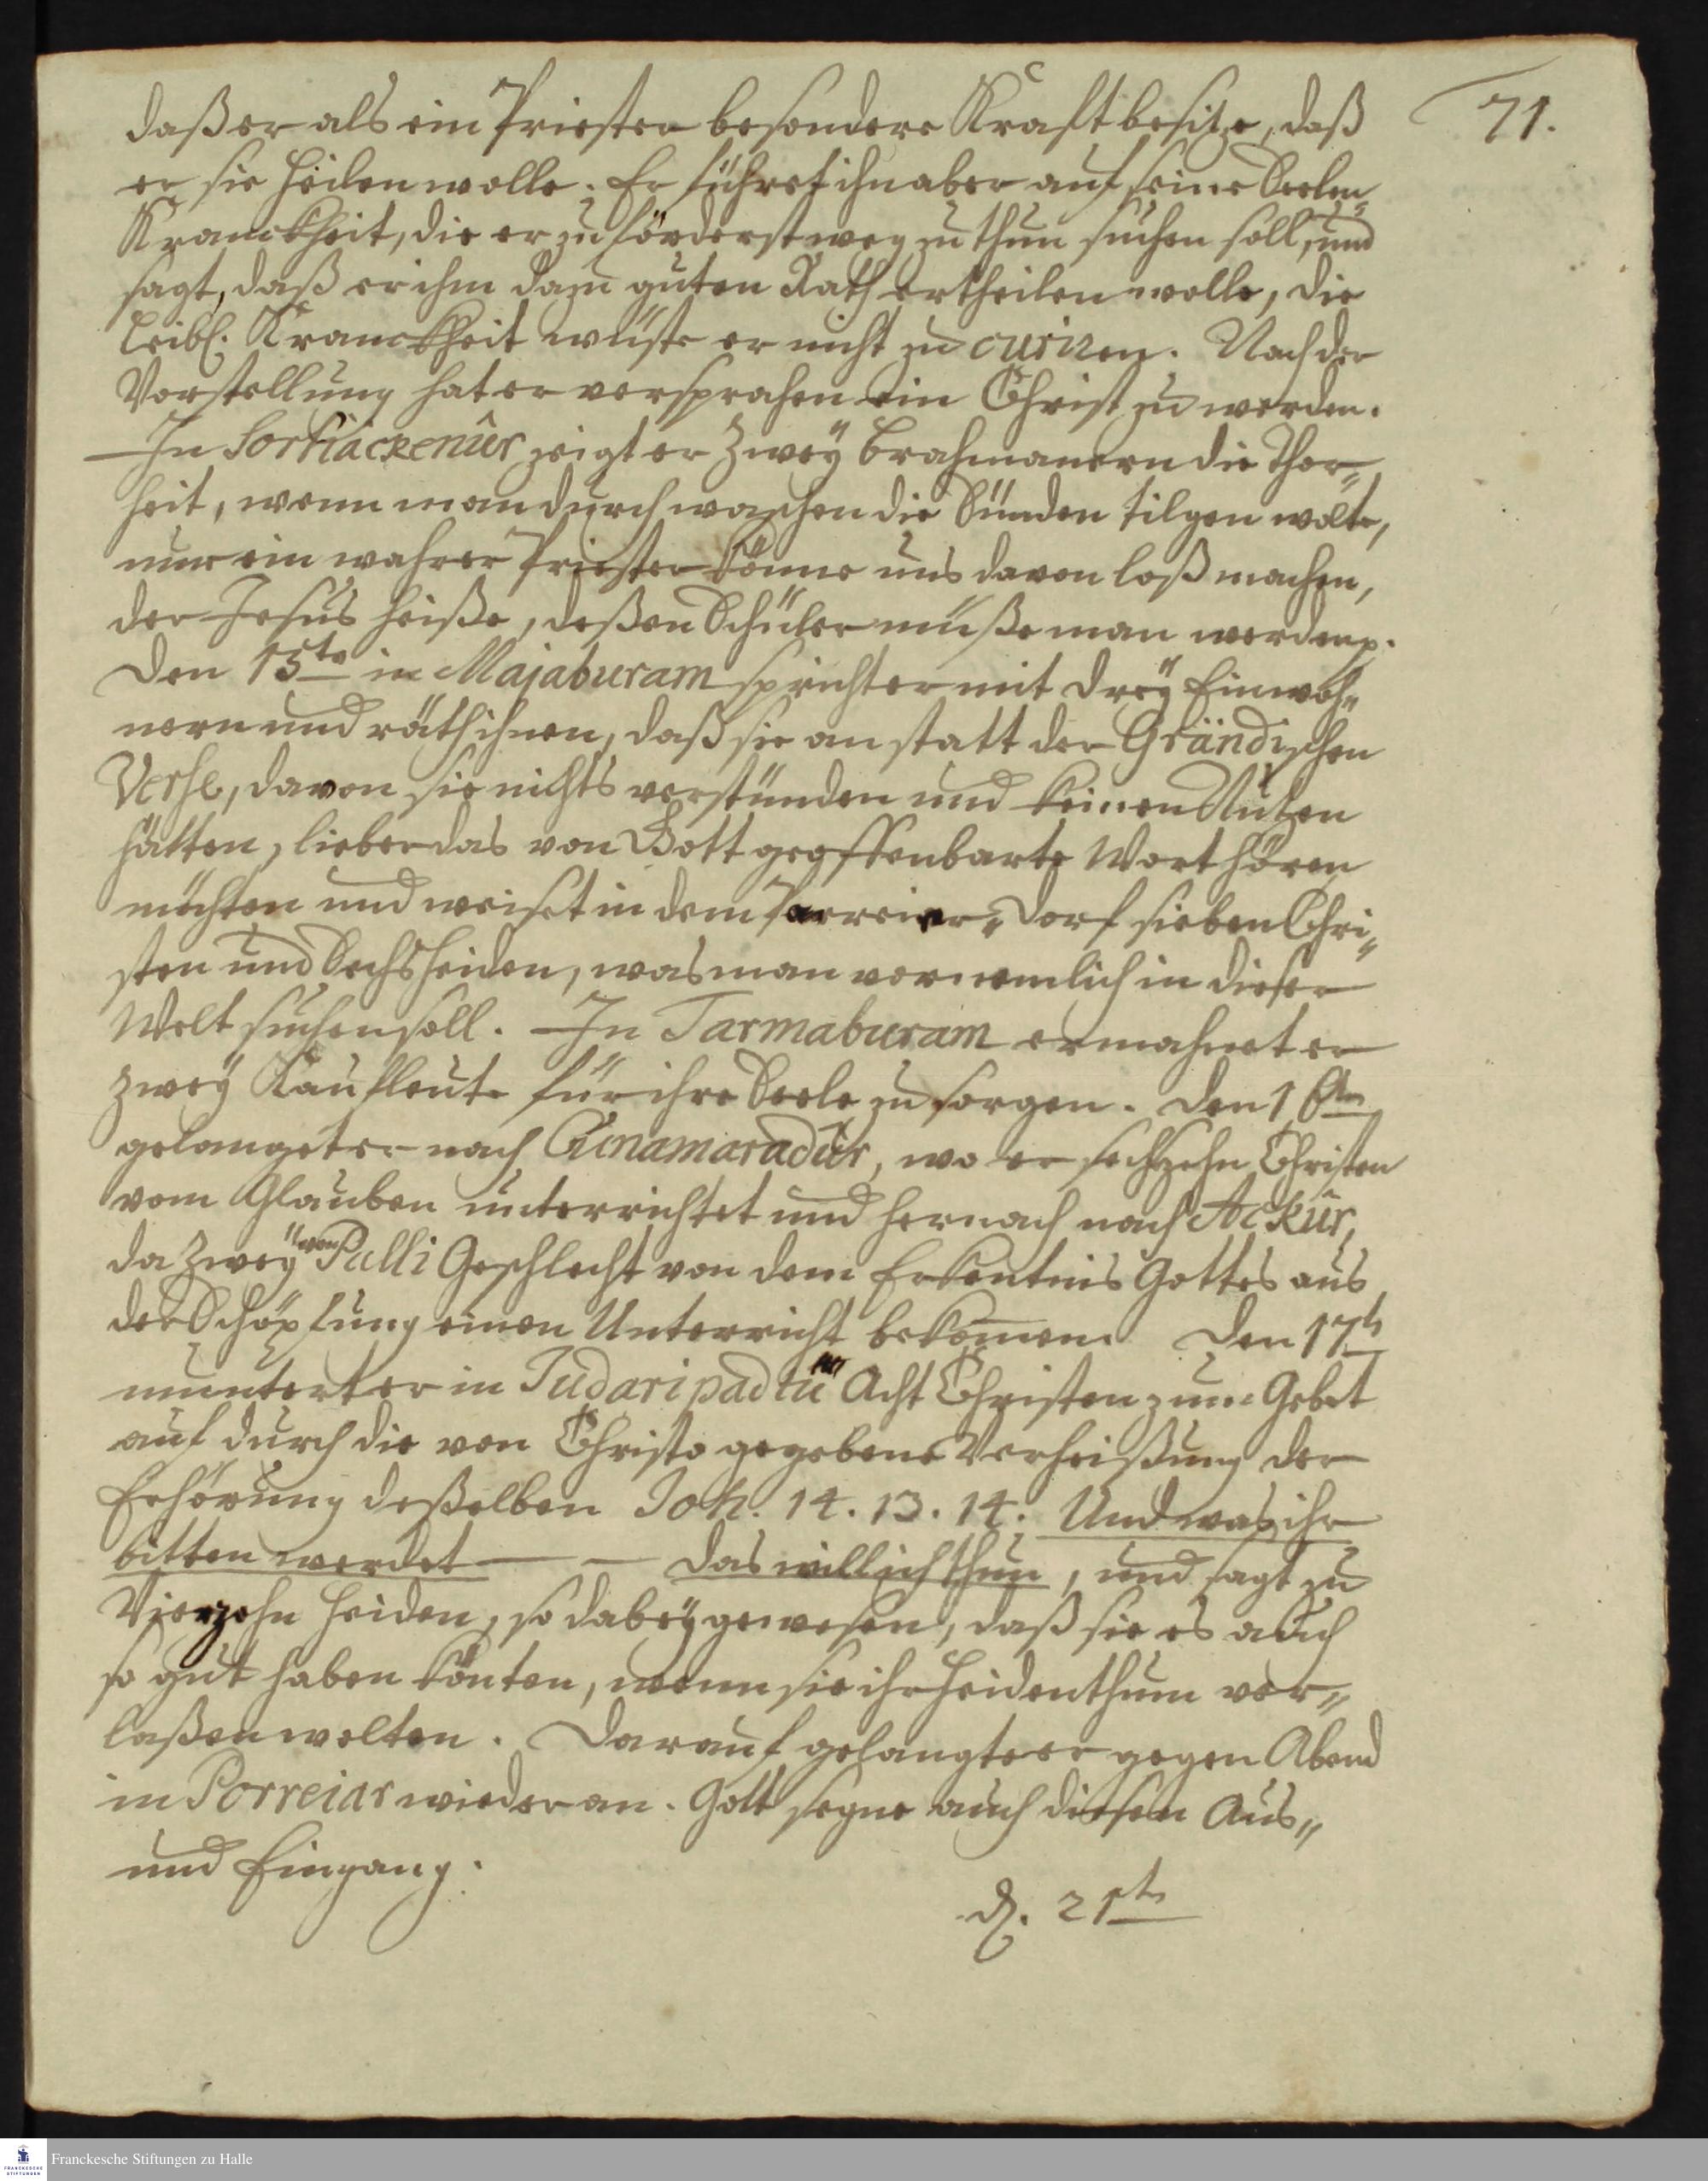 71.
daß er als ein Priester besondere Krafft besitze, daß
er sie heilen wolle. Er führet ihn aber auf seine Seelen„
Kranckheit, die er zu förderst weg zu thun suchen soll, und
sagt, daß er ihm dazu guten Rath ertheilen wolle, die
leibl. Kranckheit wüste er nicht zu curiren. Nach der
Vorstellung hat er versprochen ein Christ zu werden.
In zeigt er zwey Brahmanern die Thor„
heit, wenn man durch waschen die Sünden tilgen wolte,
nur ein wahrer Priester könne uns davon loß machen,
der Jesus heiße, deßen Schüler müße man werden p.
Den 15te in Majaburam spricht er mit drey Einwoh„
nern und räth ihnen, daß sie an statt der Grändischen
Verse, davon sie nichts verstünden und keinen Nutzen
hätten, lieber das von Gott geoffenbarte Wort hören
möchten und weiset in dem Parreier„Dorf sieben Chri„
sten und Sechs Heiden, was man vornemlich in dieser
Welt suchen soll. In Tarmaburam ermahnet er
zwey Kaufleute für ihre Seele zu sorgen. Den 16ten
gelanget er nach Cunamaradûr, wo er sechzehn Christen
vom Glauben unterrichtet und hernach nach Ackûr,
da zwey von Palli Geschlecht von dem Erkentnis Gottes aus
der Schöpfung einen Unterricht bekommen. Den 17t
muntert er in Tudaripadtu Acht Christen zum Gebet
auf durch die von Christo gegebene Verheißung der
Erhörung deßelben Joh. 14. 13. 14. Und was ihr
bitten werdet — — das will ich thun, und sagt zu
Vierzehn Heiden, so dabey gewesen, daß sie es auch
so gut haben könten, wenn sie ihr Heidenthum ver„
laßen wolten. Darauf gelangte er gegen Abend
in Porreiar wieder an. Gott segne auch diesen Aus„
und Eingang.
d. 21te
FRANCKESCHE
STIFTUNGEN
Franckesche Stiftungen zu Halle